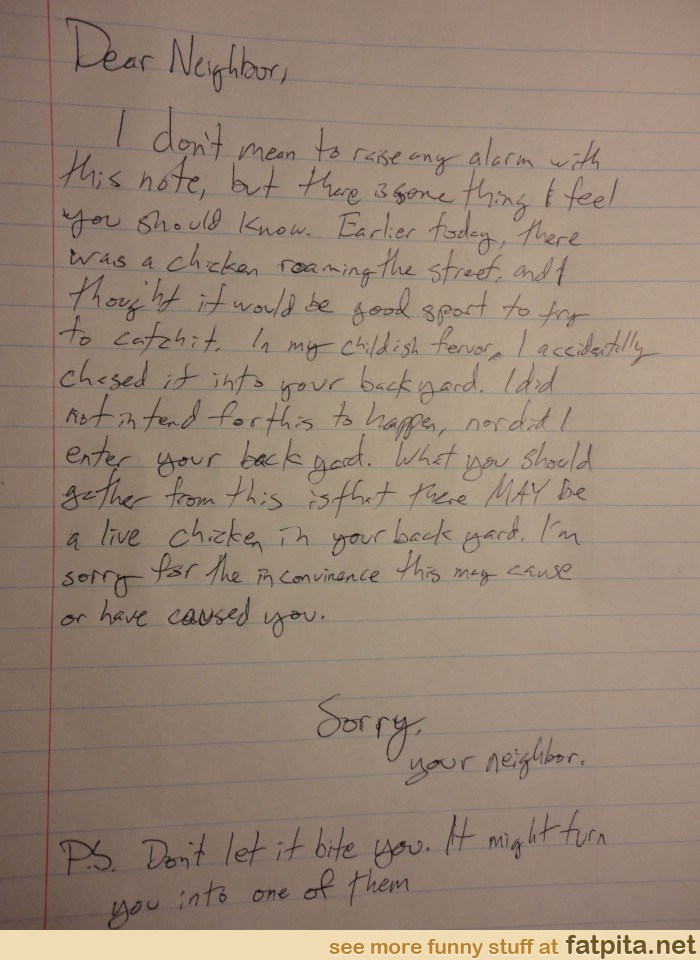 Dear Neighbor,
I don't mean to raise any alarm with
this note, but there is some thing I feel
you should know. Earlier today, there
was a chicken roaming the street, and I
thought it would be good sport to try
to catch it. In my childish fervor, I accidentally
chased it into your back yard. I did
not intend for this to happen, nor did I
enter your back yard. What you should
gather from this is that there MAY be
a live chicken in your back yard. I'm
sorry for the inconvinence this may cause
or have caused you.
Sorry,
your neighbor.
P.S. Don't let it bite you. It might turn
you into one of them
see more funny stuff at fatpita.net